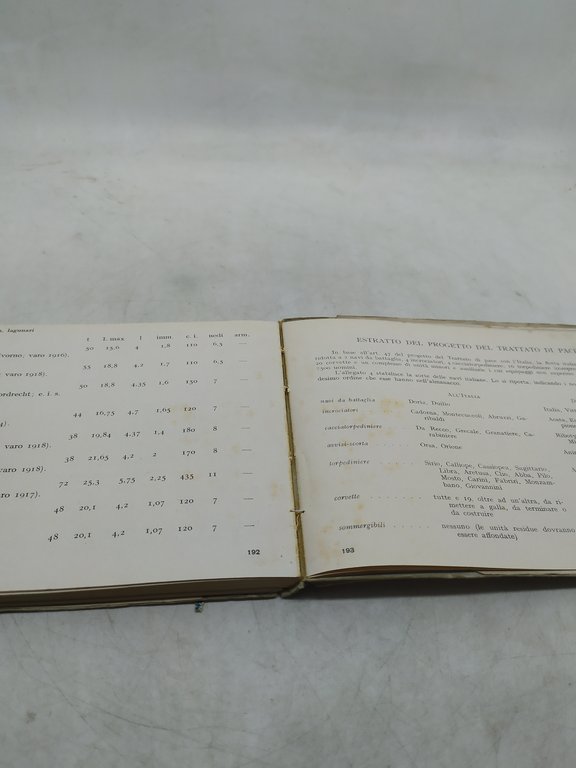 lagunari
t L max l imm c. i. nodi arm.
50 23,6 4 1,8 110 6,5 —
vorno, varo 1916).
55 18,8 4,2 1,7 110 6,5 —
varo 1918).
50 18,8 4,35 1,6 150 7 —
ordrecht; e. i. s.
44 16,75 4,7 1,65 120 7 —
4).
38 19,84 4,37 1,4 180 8 —
varo 1918).
38 21,65 4,2 2 170 8 —
varo 1918).
72 25,3 5,75 2,25 435 11 —
ro 1917).
48 20,1 4,2 1,07 120 7 —
48 20,1 4,2 1,07 120 7 —
192
ESTRATTO DEL PROGETTO DEL TRATTATO DI PACE
In base all'art. 47 del progetto del Trattato di pace con l'Italia, la flotta
ridotta a 2 navi da battaglia, 4 incrociatori, 4 cacciatorpediniere, 16 torpediniere
20 corvette e un complesso di unità minori e ausiliarie i cui equipaggi non
L'allegato 4 stabilisce la sorte delle navi italiane. Lo si riporta, indicando i
desimo ordine che esse hanno nell'almanacco.
ALL'ITALIA
navi da battaglia Doria, Duilio
incrociatori Cadorna, Montecuccoli, Abruzzi, Ga-
ribaldi
cacciatorpediniere Da Recco, Grecale, Granatiere, Ca-
rabiniere
avvisi-scorta Orsa, Orione
torpediniere Sirio, Calliope, Cassiopea, Sagittario,
Libra, Aretusa, Clio, Abba, Pilo,
Mosto, Carini, Fabrizi, Monzam-
bano, Giovannini
corvette tutte e 19, oltre ad un'altra, da ri-
mettere a galla, da terminare o
da costruire
sommergibili nessuno (le unità residue dovranno
essere affondate)
193